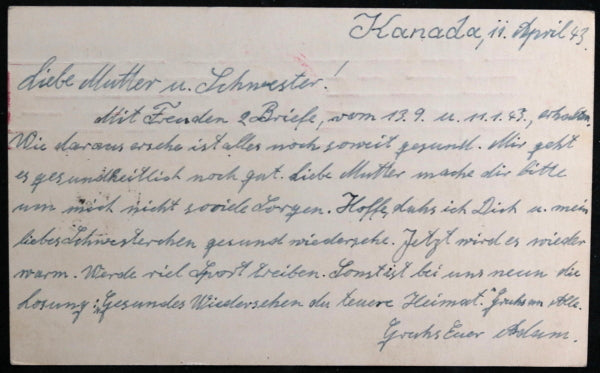 Kanada, 11. April 43.
Liebe Mutter u. Schwester!
Mit Freuden 2 Briefe, vom 13.9. u. 11.1.43., erhalten.
Wie daraus ersehe ist alles noch soweit gesund. Mir geht
es gesundheitlich noch gut. Liebe Mutter mache dir bitte
um mich nicht soviele Sorgen. Hoffe, dahs ich Dich u. mein
liebes Schwesterchen gesund wiedersehe. Jetzt wird es wieder
warm. Werde viel Sport treiben. Sonst ist bei uns die
Losung: "Gesundes Wiedersehen du teuere Heimat." Gruhs an Alle.
Gruhs Euer Adam.